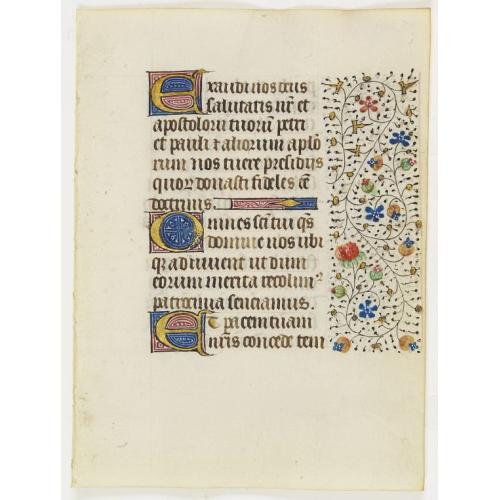 Exaudi nos deus
salutaris nr̄ et
apostoloru tuoru petri
et pauli ⁊ aliorum aplo
rum nos tuere presidijs
quor donasti fideles eē
doctrinis.
Omnes scī tui q̄s
domine nos ubi
q̄ adiuvent ut dum
eorum merita recolim⁹
patrocinia senciamus.
Et pacem tuam
nr̄is concede tem